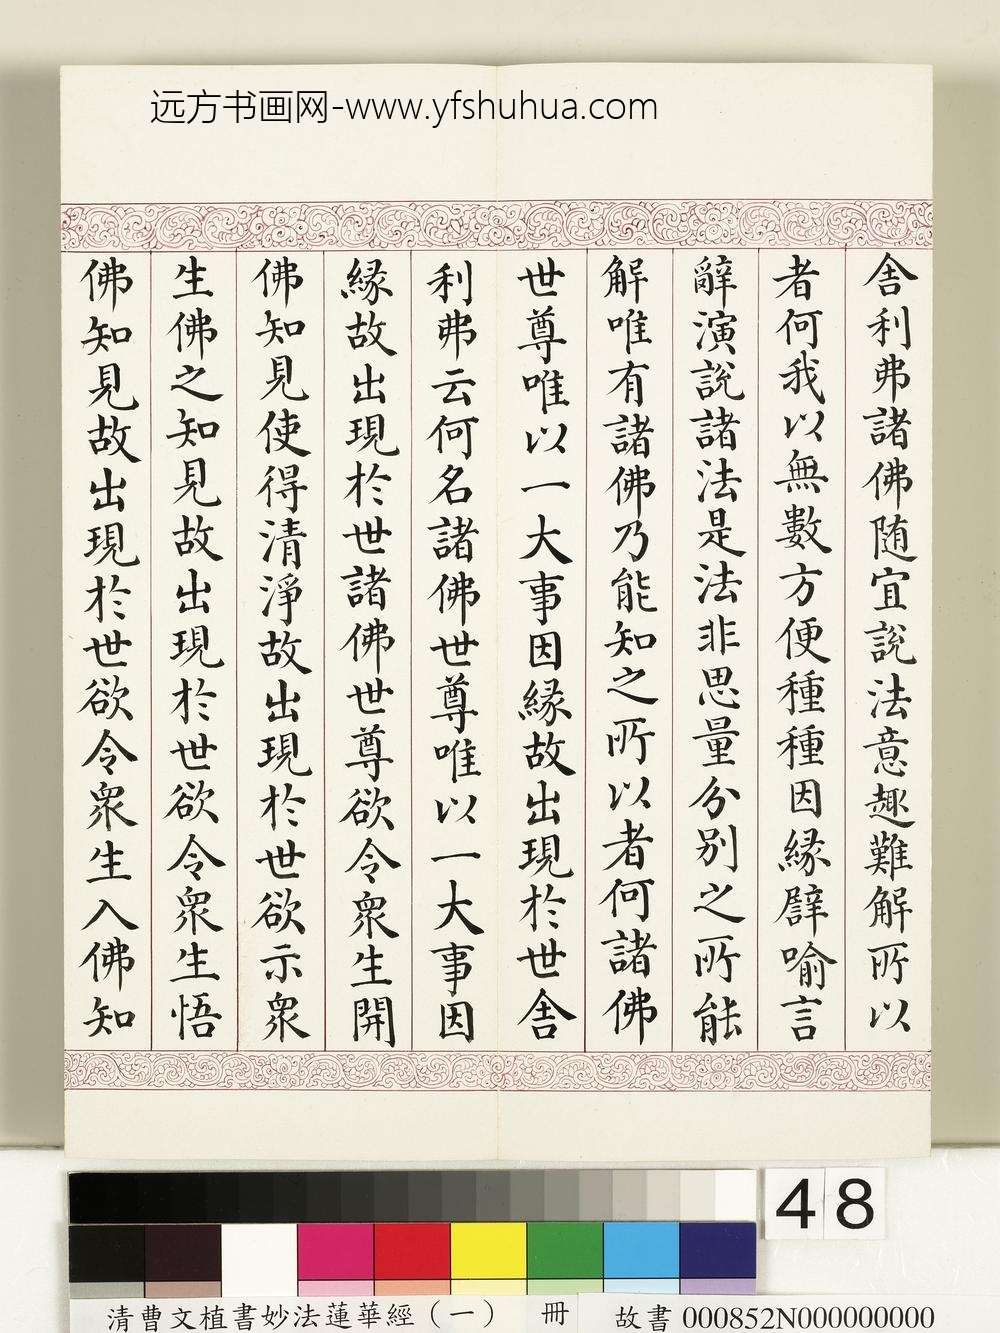 远方书画网-www.yfshuhua.com
舎利弗諸佛随宜說法意趣難解所以
者何我以無數方便種種因縁譬喻言
辭演說諸法是法非思量分別之所能
解唯有諸佛乃能知之所以者何諸佛
世尊唯以一大事因縁故出現於世舎
利弗云何名諸佛世尊唯以一大事因
縁故出現於世諸佛世尊欲令衆生開
佛知見使得清淨故出現於世欲示衆
生佛之知見故出現於世欲令衆生悟
佛知見故出現於世欲令衆生入佛知
48
清曹文植書妙法蓮華經（一） 冊 故書 000852N000000000